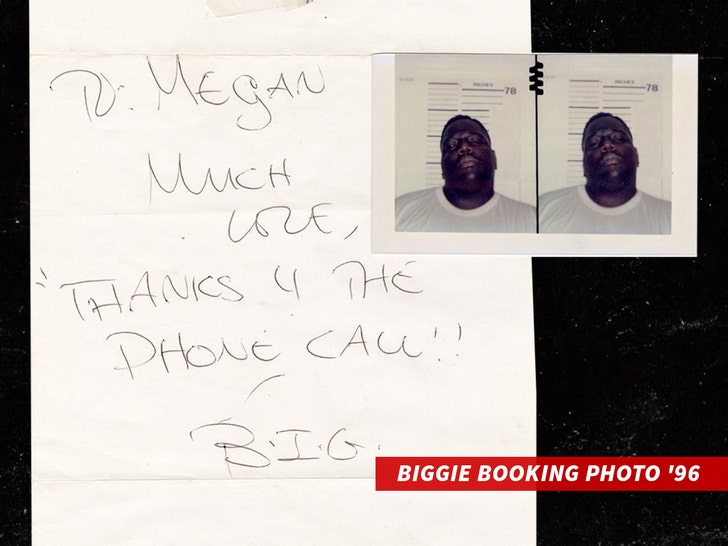 TO: MEGAN
MUCH
LOVE,
THANKS 4 THE
PHONE CALL!!
B.I.G.
INCHES
78
INCHES
78
BIGGIE BOOKING PHOTO '96